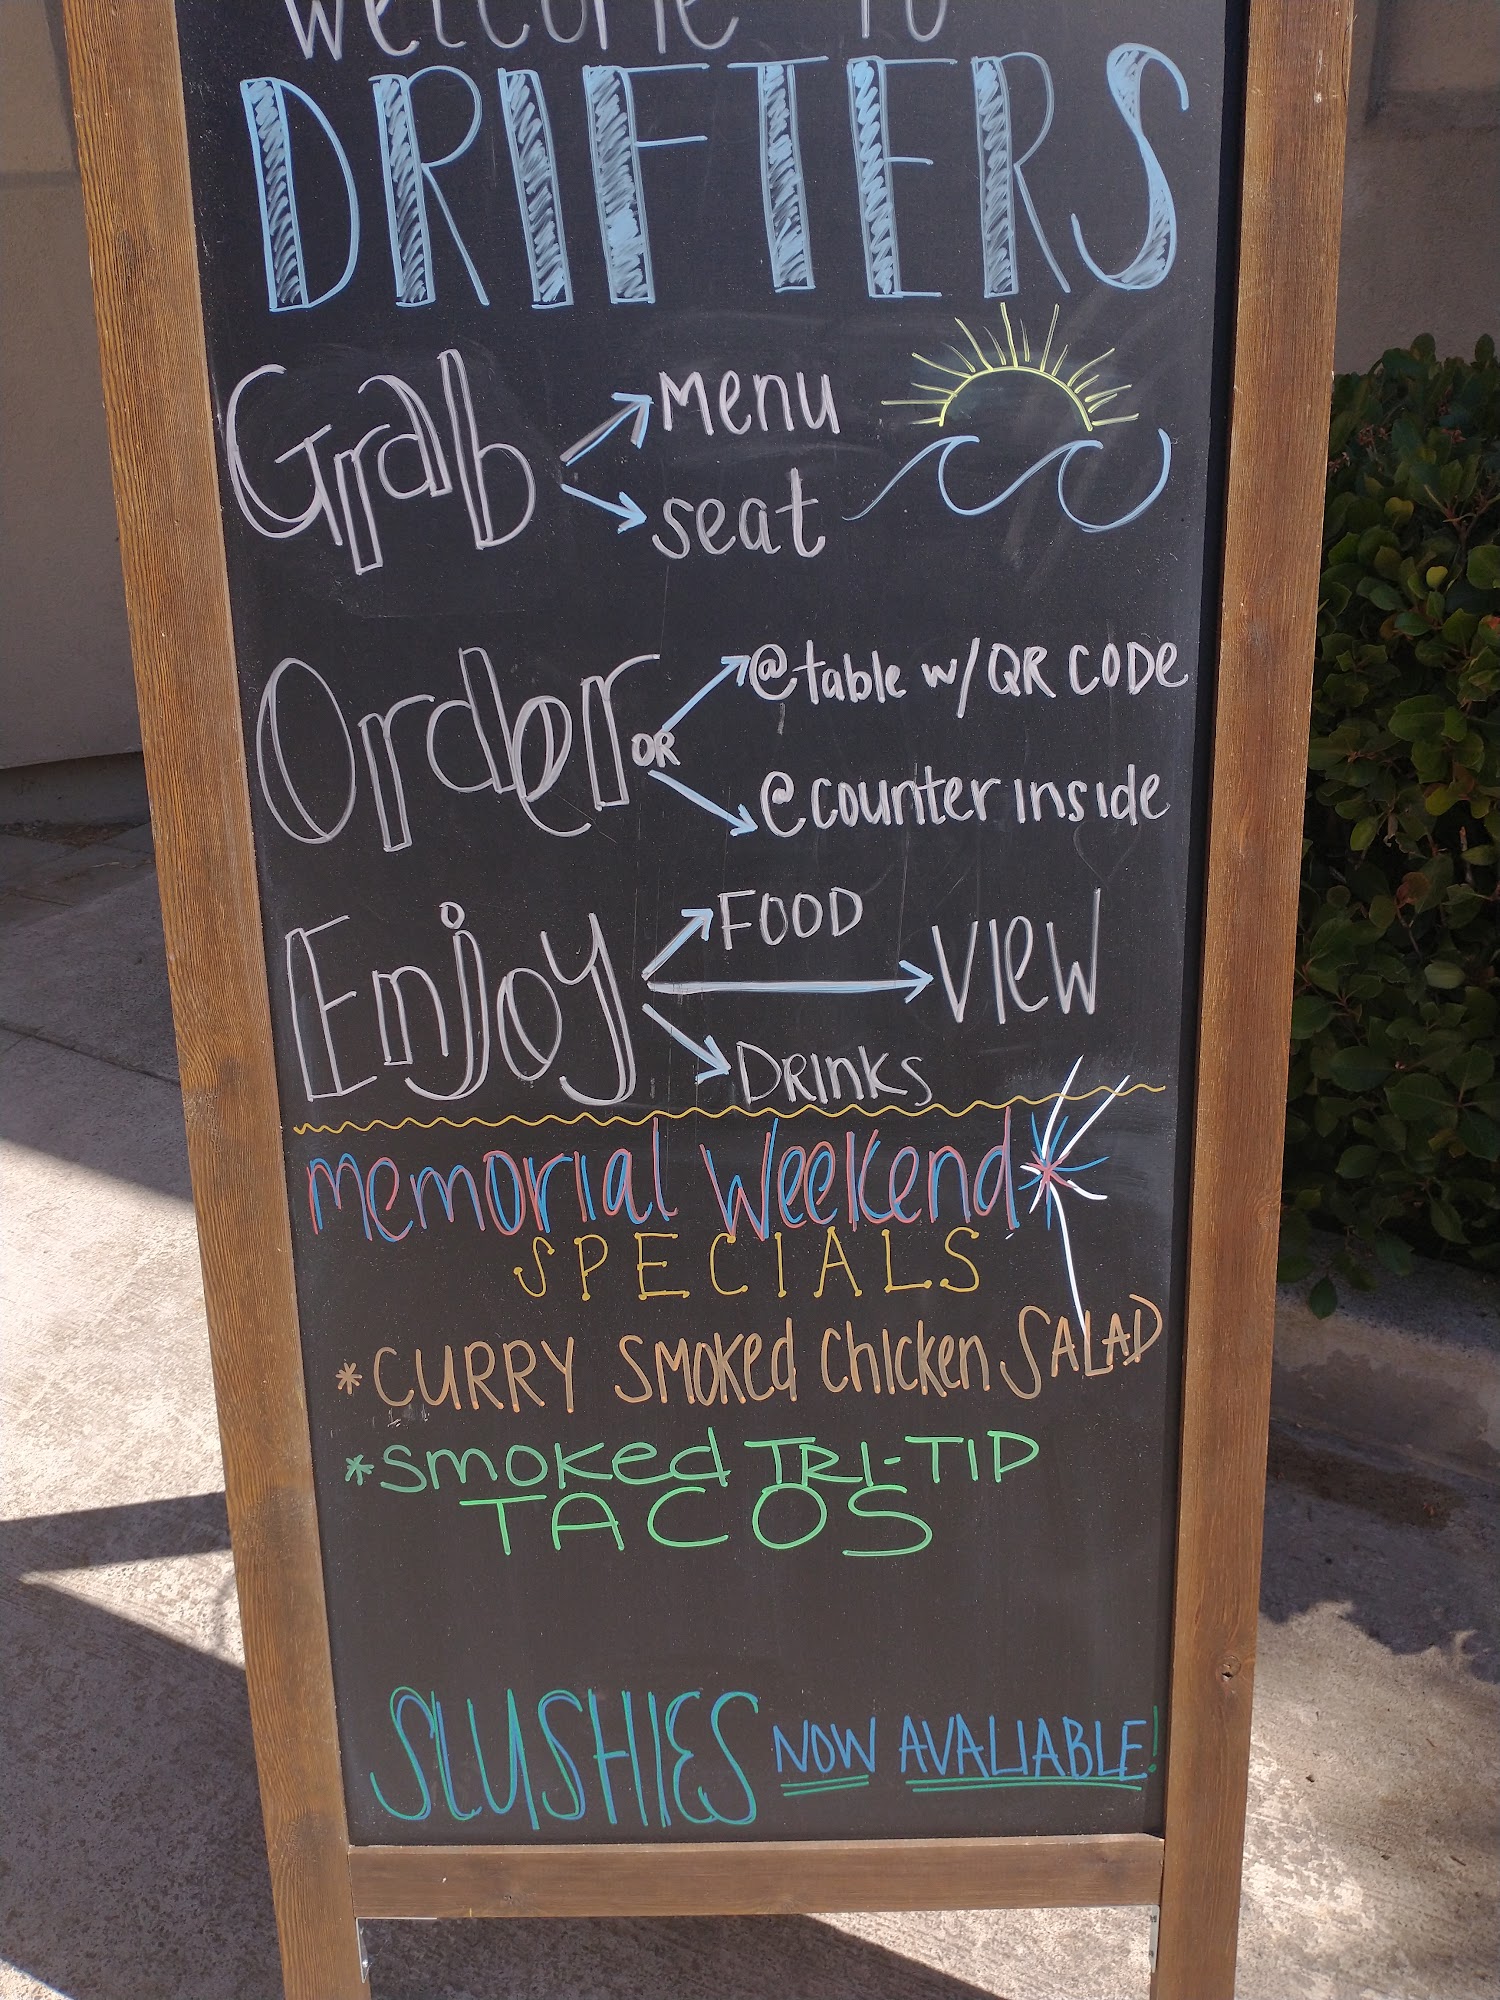 Welcome to
DRIFTERS
Grab
Menu
seat
Order
OR
@table w/QR CODE
@counter inside
Enjoy
FOOD
VIEW
DRINKS
Memorial Weekend
SPECIALS
*CURRY SMOKED Chicken SALAD
*Smoked TRI-TIP
TACOS
SLUSHIES NOW AVALIABLE!